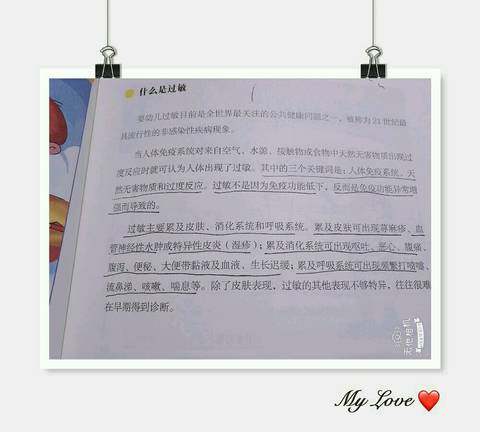 什么是过敏
婴幼儿过敏目前是全世界最关注的公共健康问题之一，被称为21世纪最
具流行性的非感染性疾病现象。
当人体免疫系统对来自空气、水源、接触物或食物中天然无害物质出现过
度反应时就可认为人体出现了过敏。其中的三个关键词是：人体免疫系统、天
然无害物质和过度反应。过敏不是因为免疫功能低下，反而是免疫功能异常增
强而导致的。
过敏主要累及皮肤、消化系统和呼吸系统。累及皮肤可出现荨麻疹、血
管神经性水肿或特异性皮炎（湿疹）；累及消化系统可出现呕吐、恶心、腹痛、
腹泻、便秘、大便带黏液及血液、生长迟缓；累及呼吸系统可出现频繁打喷嚏、
流鼻涕、咳嗽、喘息等。除了皮肤表现，过敏的其他表现不够特异，往往很难
在早期得到诊断。
无他相机
My Love